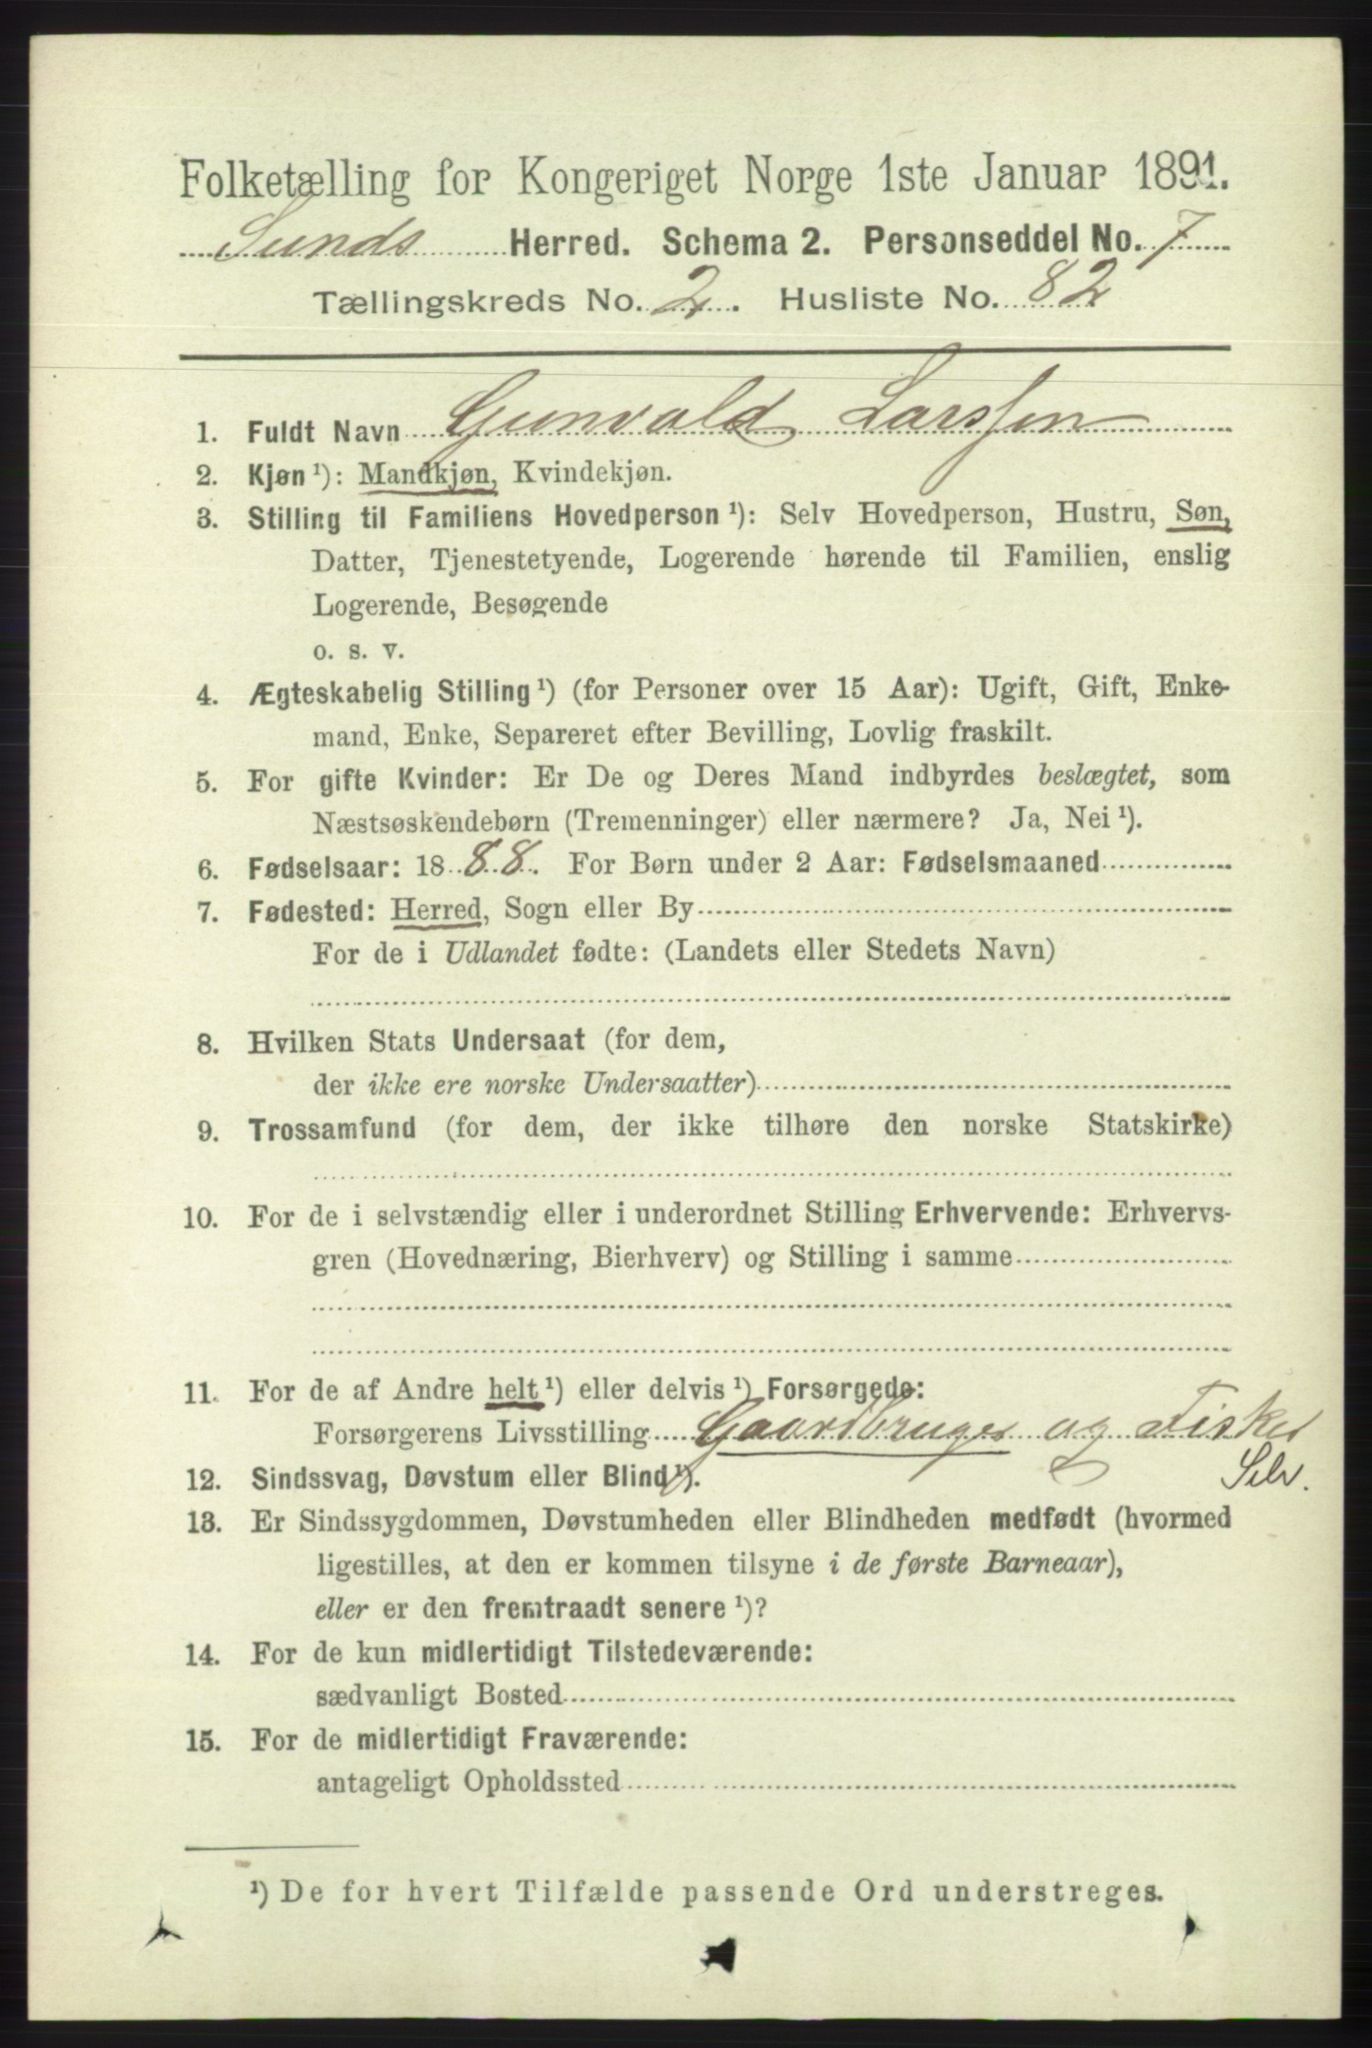 Folketælling for Kongeriget Norge 1ste Januar 1891.
Sunds Herred. Schema 2. Personseddel No. 7
Tællingskreds No. 2. Husliste No. 82
1. Fuldt Navn Gunvald Larssen
2. Kjøn¹): Mandkjøn, Kvindekjøn.
3. Stilling til Familiens Hovedperson¹): Selv Hovedperson, Hustru, Søn,
Datter, Tjenestetyende, Logerende hørende til Familien, enslig
Logerende, Besøgende
o. s. v.
4. Ægteskabelig Stilling¹) (for Personer over 15 Aar): Ugift, Gift, Enke-
mand, Enke, Separeret efter Bevilling, Lovlig fraskilt.
5. For gifte Kvinder: Er De og Deres Mand indbyrdes beslægtet, som
Næstsøskendebørn (Tremenninger) eller nærmere? Ja, Nei¹).
6. Fødselsaar: 1888. For Børn under 2 Aar: Fødselsmaaned
7. Fødested: Herred, Sogn eller By
For de i Udlandet fødte: (Landets eller Stedets Navn)
8. Hvilken Stats Undersaat (for dem,
der ikke ere norske Undersaatter)
9. Trossamfund (for dem, der ikke tilhøre den norske Statskirke)
10. For de i selvstændig eller i underordnet Stilling Erhvervende: Erhvervs-
gren (Hovednæring, Bierhverv) og Stilling i samme
11. For de af Andre helt¹) eller delvis¹) Forsørgede:
Forsørgerens Livsstilling Gaardbruger og Fisker
Selv.
12. Sindssvag, Døvstum eller Blind¹).
13. Er Sindssygdommen, Døvstumheden eller Blindheden medfødt (hvormed
ligestilles, at den er kommen tilsyne i de første Barneaar),
eller er den fremtraadt senere¹)?
14. For de kun midlertidigt Tilstedeværende:
sædvanligt Bosted
15. For de midlertidigt Fraværende:
antageligt Opholdssted
¹) De for hvert Tilfælde passende Ord understreges.